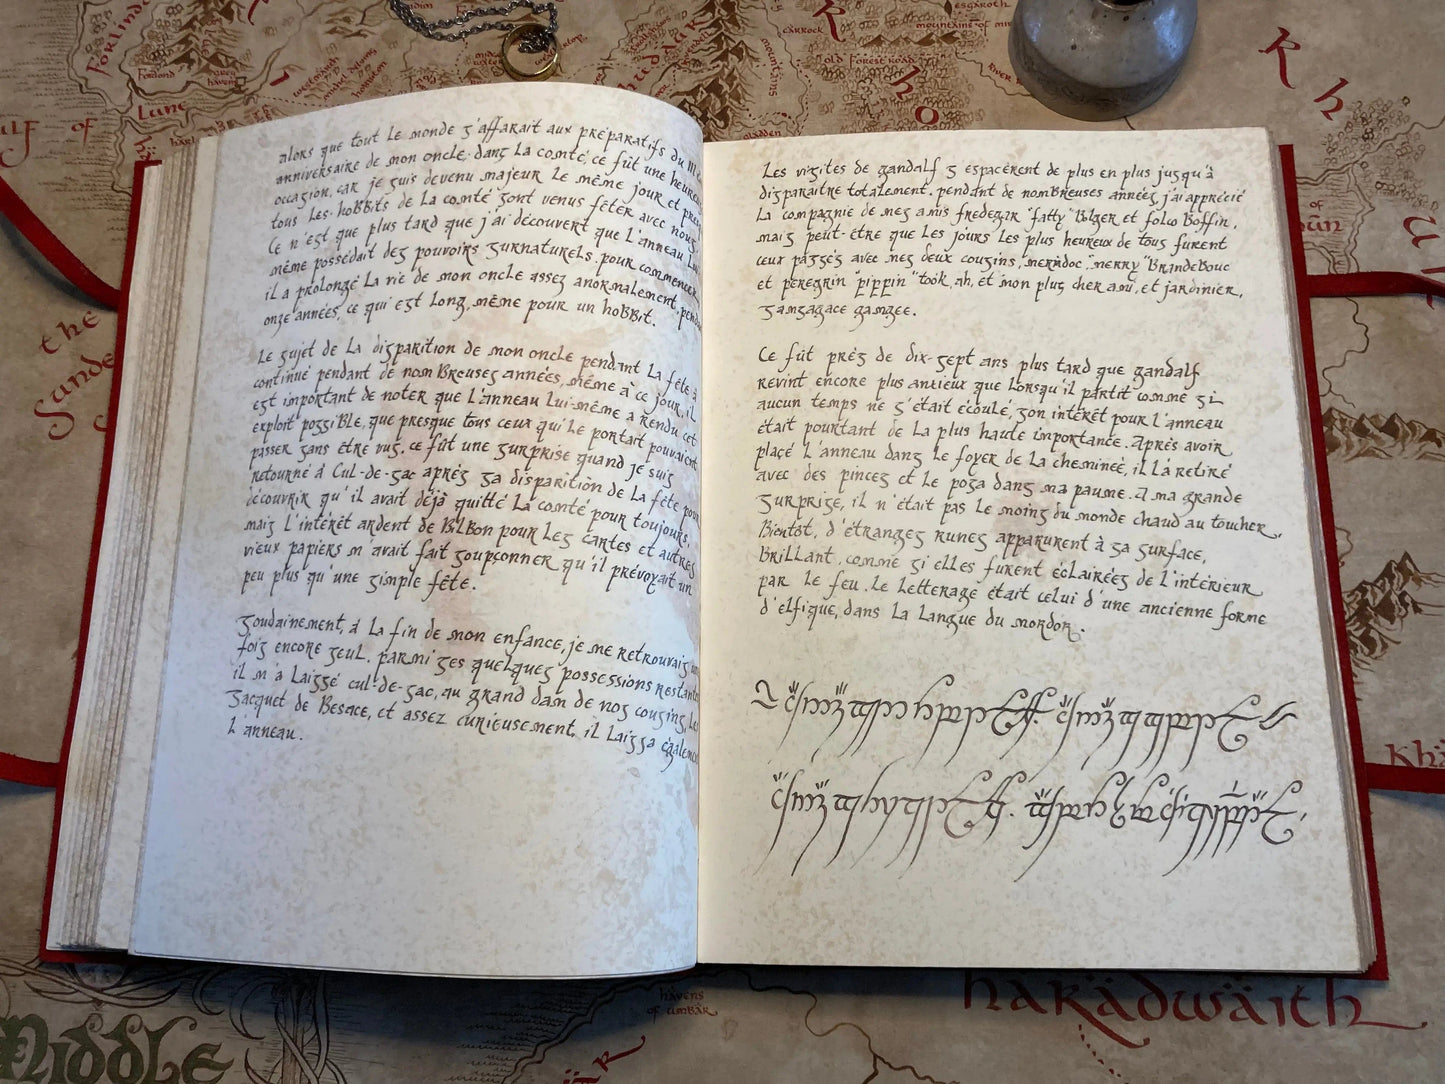 alors que tout le monde s'affarait aux préparatifs du
anniversaire de mon oncle. dans la comté, ce fût une heureuse
occasion, car je suis devenu majeur le même jour et
tous les hobbits de la comté sont venus fêter avec nous.
Ce n'est que plus tard que j'ai découvert que l'anneau lui
même possédait des pouvoirs surnaturels. pour commencer
il a prolongé la vie de mon oncle assez anormalement, pendant
onze années, ce qui est long, même pour un hobbit.
Le sujet de la disparition de mon oncle pendant la fête a
continué pendant de nombreuses années, même à ce jour. il
est important de noter que l'anneau lui-même a rendu cet
exploit possible, que presque tous ceux qui le portait pouvaient
passer sans être vus. ce fût une surprise quand je suis
retourné à Cul-de-sac après sa disparition de la fête pour
découvrir qu'il avait déjà quitté la comté pour toujours,
mais l'intérêt ardent de Bilbon pour les cartes et autres
vieux papiers m'avait fait soupçonner qu'il prévoyait un
peu plus qu'une simple fête.
Soudainement, à la fin de mon enfance, je me retrouvais une
fois encore seul. parmi ses quelques possessions restantes
il m'a laissé cul-de-sac, au grand dam de nos cousins, les
Sacquet de Besace, et assez curieusement, il laissa également
l'anneau.
Les visites de gandalf s'espacèrent de plus en plus jusqu'à
disparaître totalement. pendant de nombreuses années j'ai apprécié
la compagnie de mes amis fredegar "fatty" Bolger et folco Boffin,
mais peut-être que les jours les plus heureux de tous furent
ceux passés avec mes deux cousins, meriadoc "merry" Brandebouc
et peregrin "pippin" took, ah, et mon plus cher ami, et jardinier,
samsagace gamgee.
Ce fût près de dix-sept ans plus tard que gandalf
revint encore plus anxieux que lorsqu'il partit comme si
aucun temps ne s'était écoulé, son intérêt pour l'anneau
était pourtant de la plus haute importance. Après avoir
placé l'anneau dans le foyer de la cheminée, il l'a retiré
avec des pinces et le posa dans ma paume. A ma grande
surprise, il n'était pas le moins du monde chaud au toucher.
Bientôt, d'étranges runes apparurent à sa surface,
Brillant, comme si elles furent éclairées de l'intérieur
par le feu. le letterage était celui d'une ancienne forme
d'elfique, dans la langue du mordor.
forlindon
Forlond
grey havens
Lune
Gulf of
carrock
esgaroth
old forest road
mountains of
Rh
the
Sunde
Khä
harädwäith
havens
of umbar
Middle